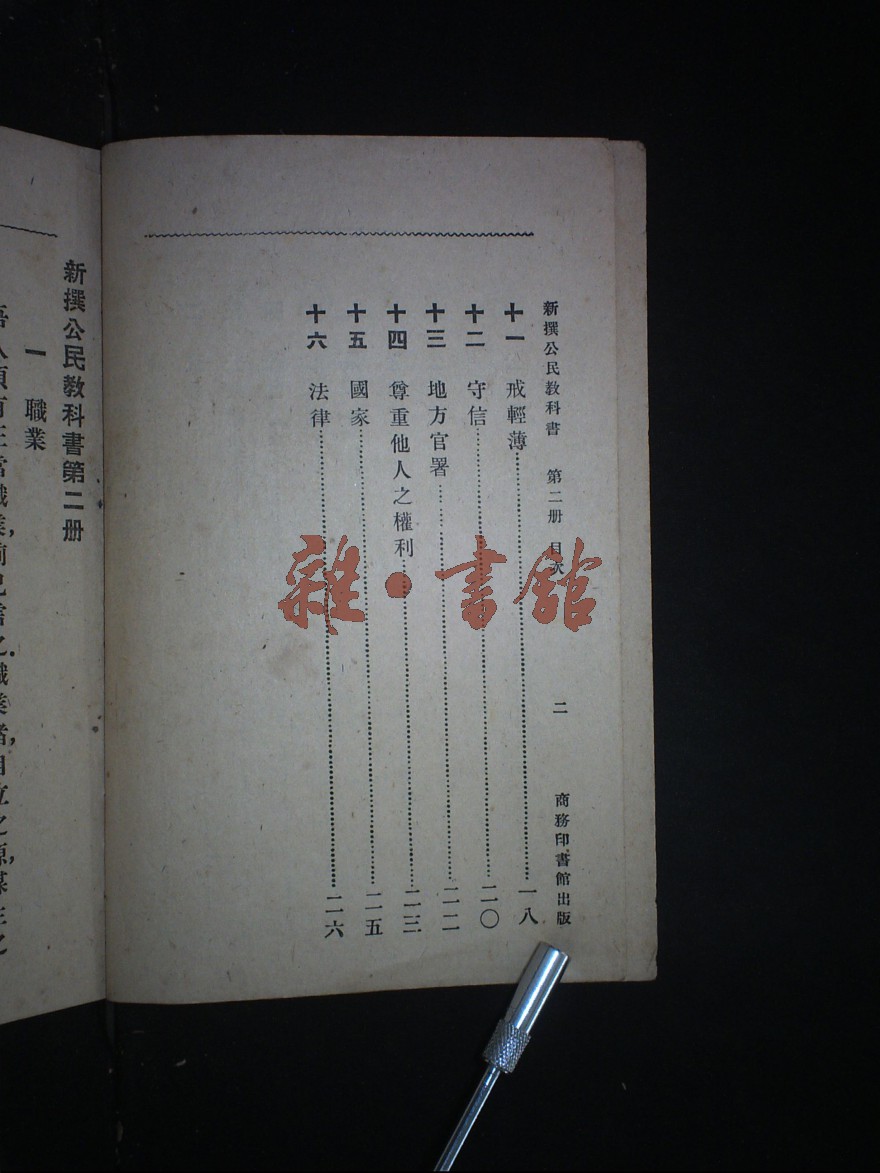 新撰公民教科書 第二册 目次 二 商務印書館出版
十一 戒輕薄……一八
十二 守信……二〇
十三 地方官署……二二
十四 尊重他人之權利……二三
十五 國家……二五
十六 法律……二六
新撰公民教科書第二册
一 職業
吾人須有正當職業,前已言之.職業者,自立之源,謀生之
雜·書館